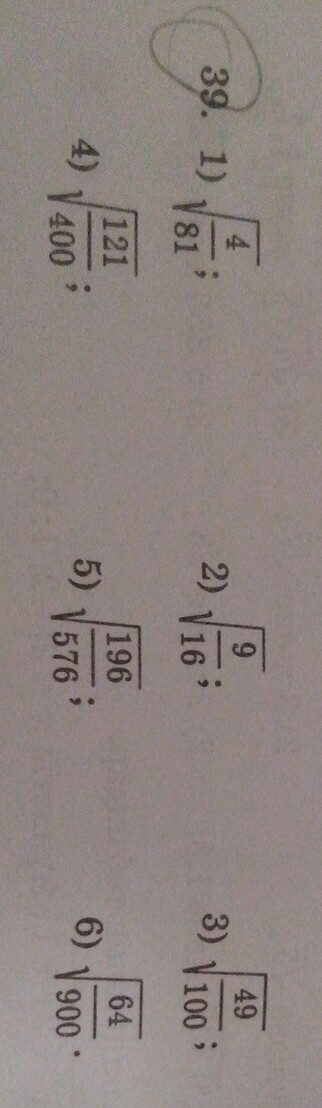 39. 1) √(4/81); 2) √(9/16); 3) √(49/100);
4) √(121/400); 5) √(196/576); 6) √(64/900).